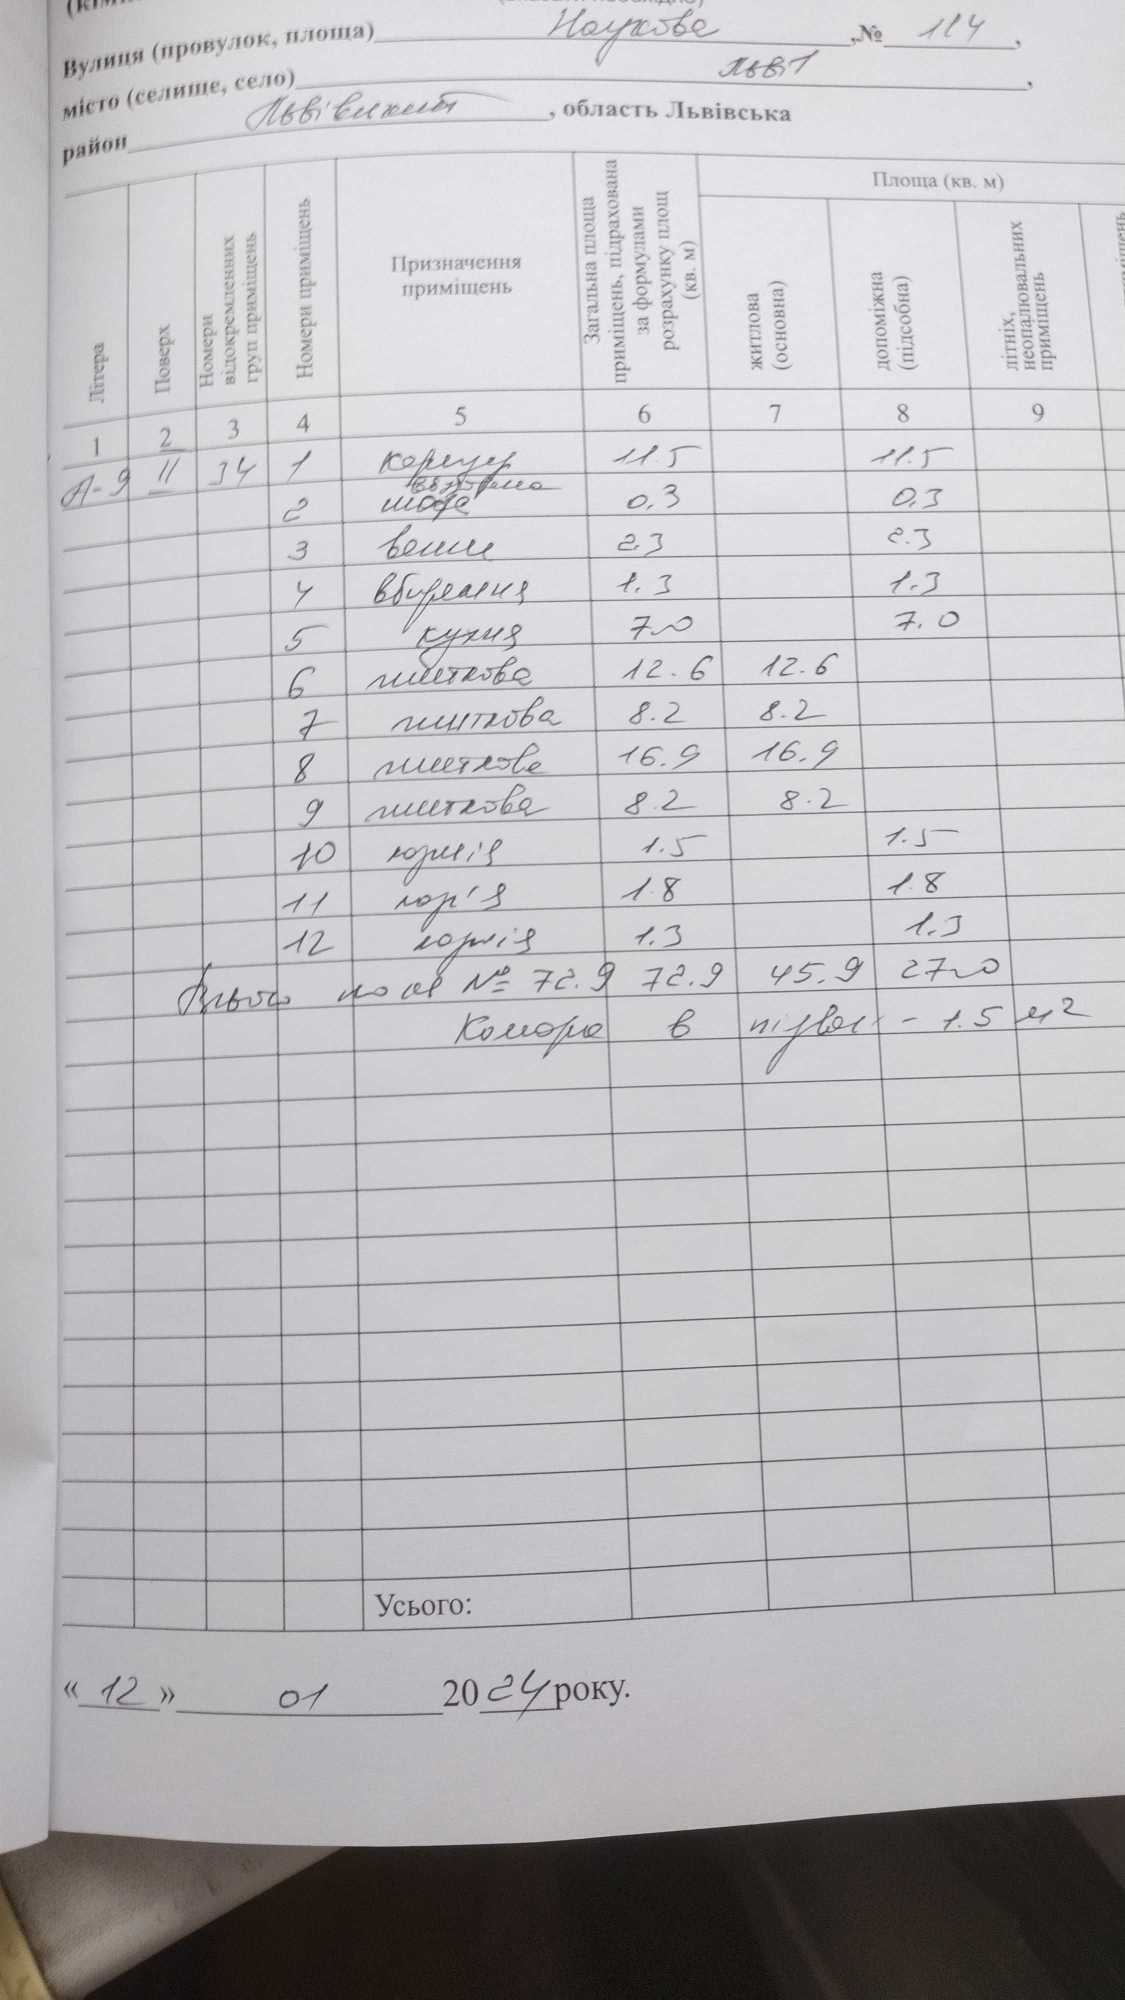 Вулиця (провулок, площа) Наукова ,№ 114,
місто (селище, село) Львів,
район Львівський, область Львівська
Літера
Поверх
Номери відокремлених груп приміщень
Номери приміщень
Призначення приміщень
Загальна площа приміщень, підрахована за формулами розрахунку площ (кв. м)
Площа (кв. м)
житлова (основна)
допоміжна (підсобна)
літніх, неопалювальних приміщень
1 2 3 4 5 6 7 8 9
А-9 II 34 1 коридор 11.5 11.5
2 шафа вбудована 0.3 0.3
3 ванна 2.3 2.3
4 вбиральня 1.3 1.3
5 кухня 7.0 7.0
6 житлова 12.6 12.6
7 житлова 8.2 8.2
8 житлова 16.9 16.9
9 житлова 8.2 8.2
10 лоджія 1.5 1.5
11 1.8 1.8
12 лоджія 1.3 1.3
Всього по кв № 72.9 72.9 45.9 27.0
Комора в підвалі - 1.5 м2
Усього:
«12» 01 2024 року.